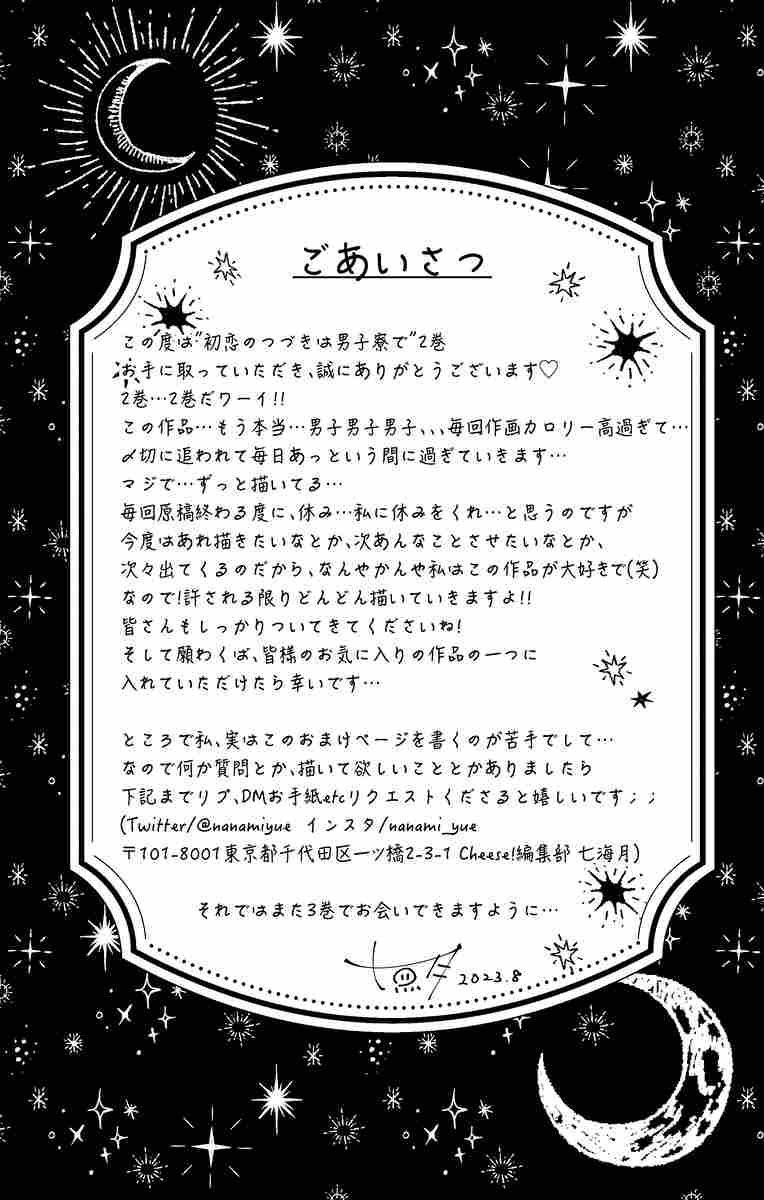 ごあいさつ
この度は"初恋のつづきは男子寮で"2巻
お手に取っていただき、誠にありがとうございます♡
2巻…2巻だワーイ!!
この作品…もう本当…男子男子男子、、、毎回作画カロリー高過ぎて…
〆切に追われて毎日あっという間に過ぎていきます…
マジで…ずっと描いてる…
毎回原稿終わる度に、休み…私に休みをくれ…と思うのですが
今度はあれ描きたいなとか、次あんなことさせたいなとか、
次々出てくるのだから、なんやかんや私はこの作品が大好きで(笑)
なので!許される限りどんどん描いていきますよ!!
皆さんもしっかりついてきてくださいね!
そして願わくば、皆様のお気に入りの作品の一つに
入れていただけたら幸いです…
ところで私、実はこのおまけページを書くのが苦手でして…
なので何か質問とか、描いて欲しいこととかありましたら
下記までリプ、DMお手紙etcリクエストくださると嬉しいです;;
(Twitter/@nanamiyue インスタ/nanami_yue
〒101-8001東京都千代田区一ツ橋2-3-1 Cheese!編集部 七海月)
それではまた3巻でお会いできますように…
2023.8